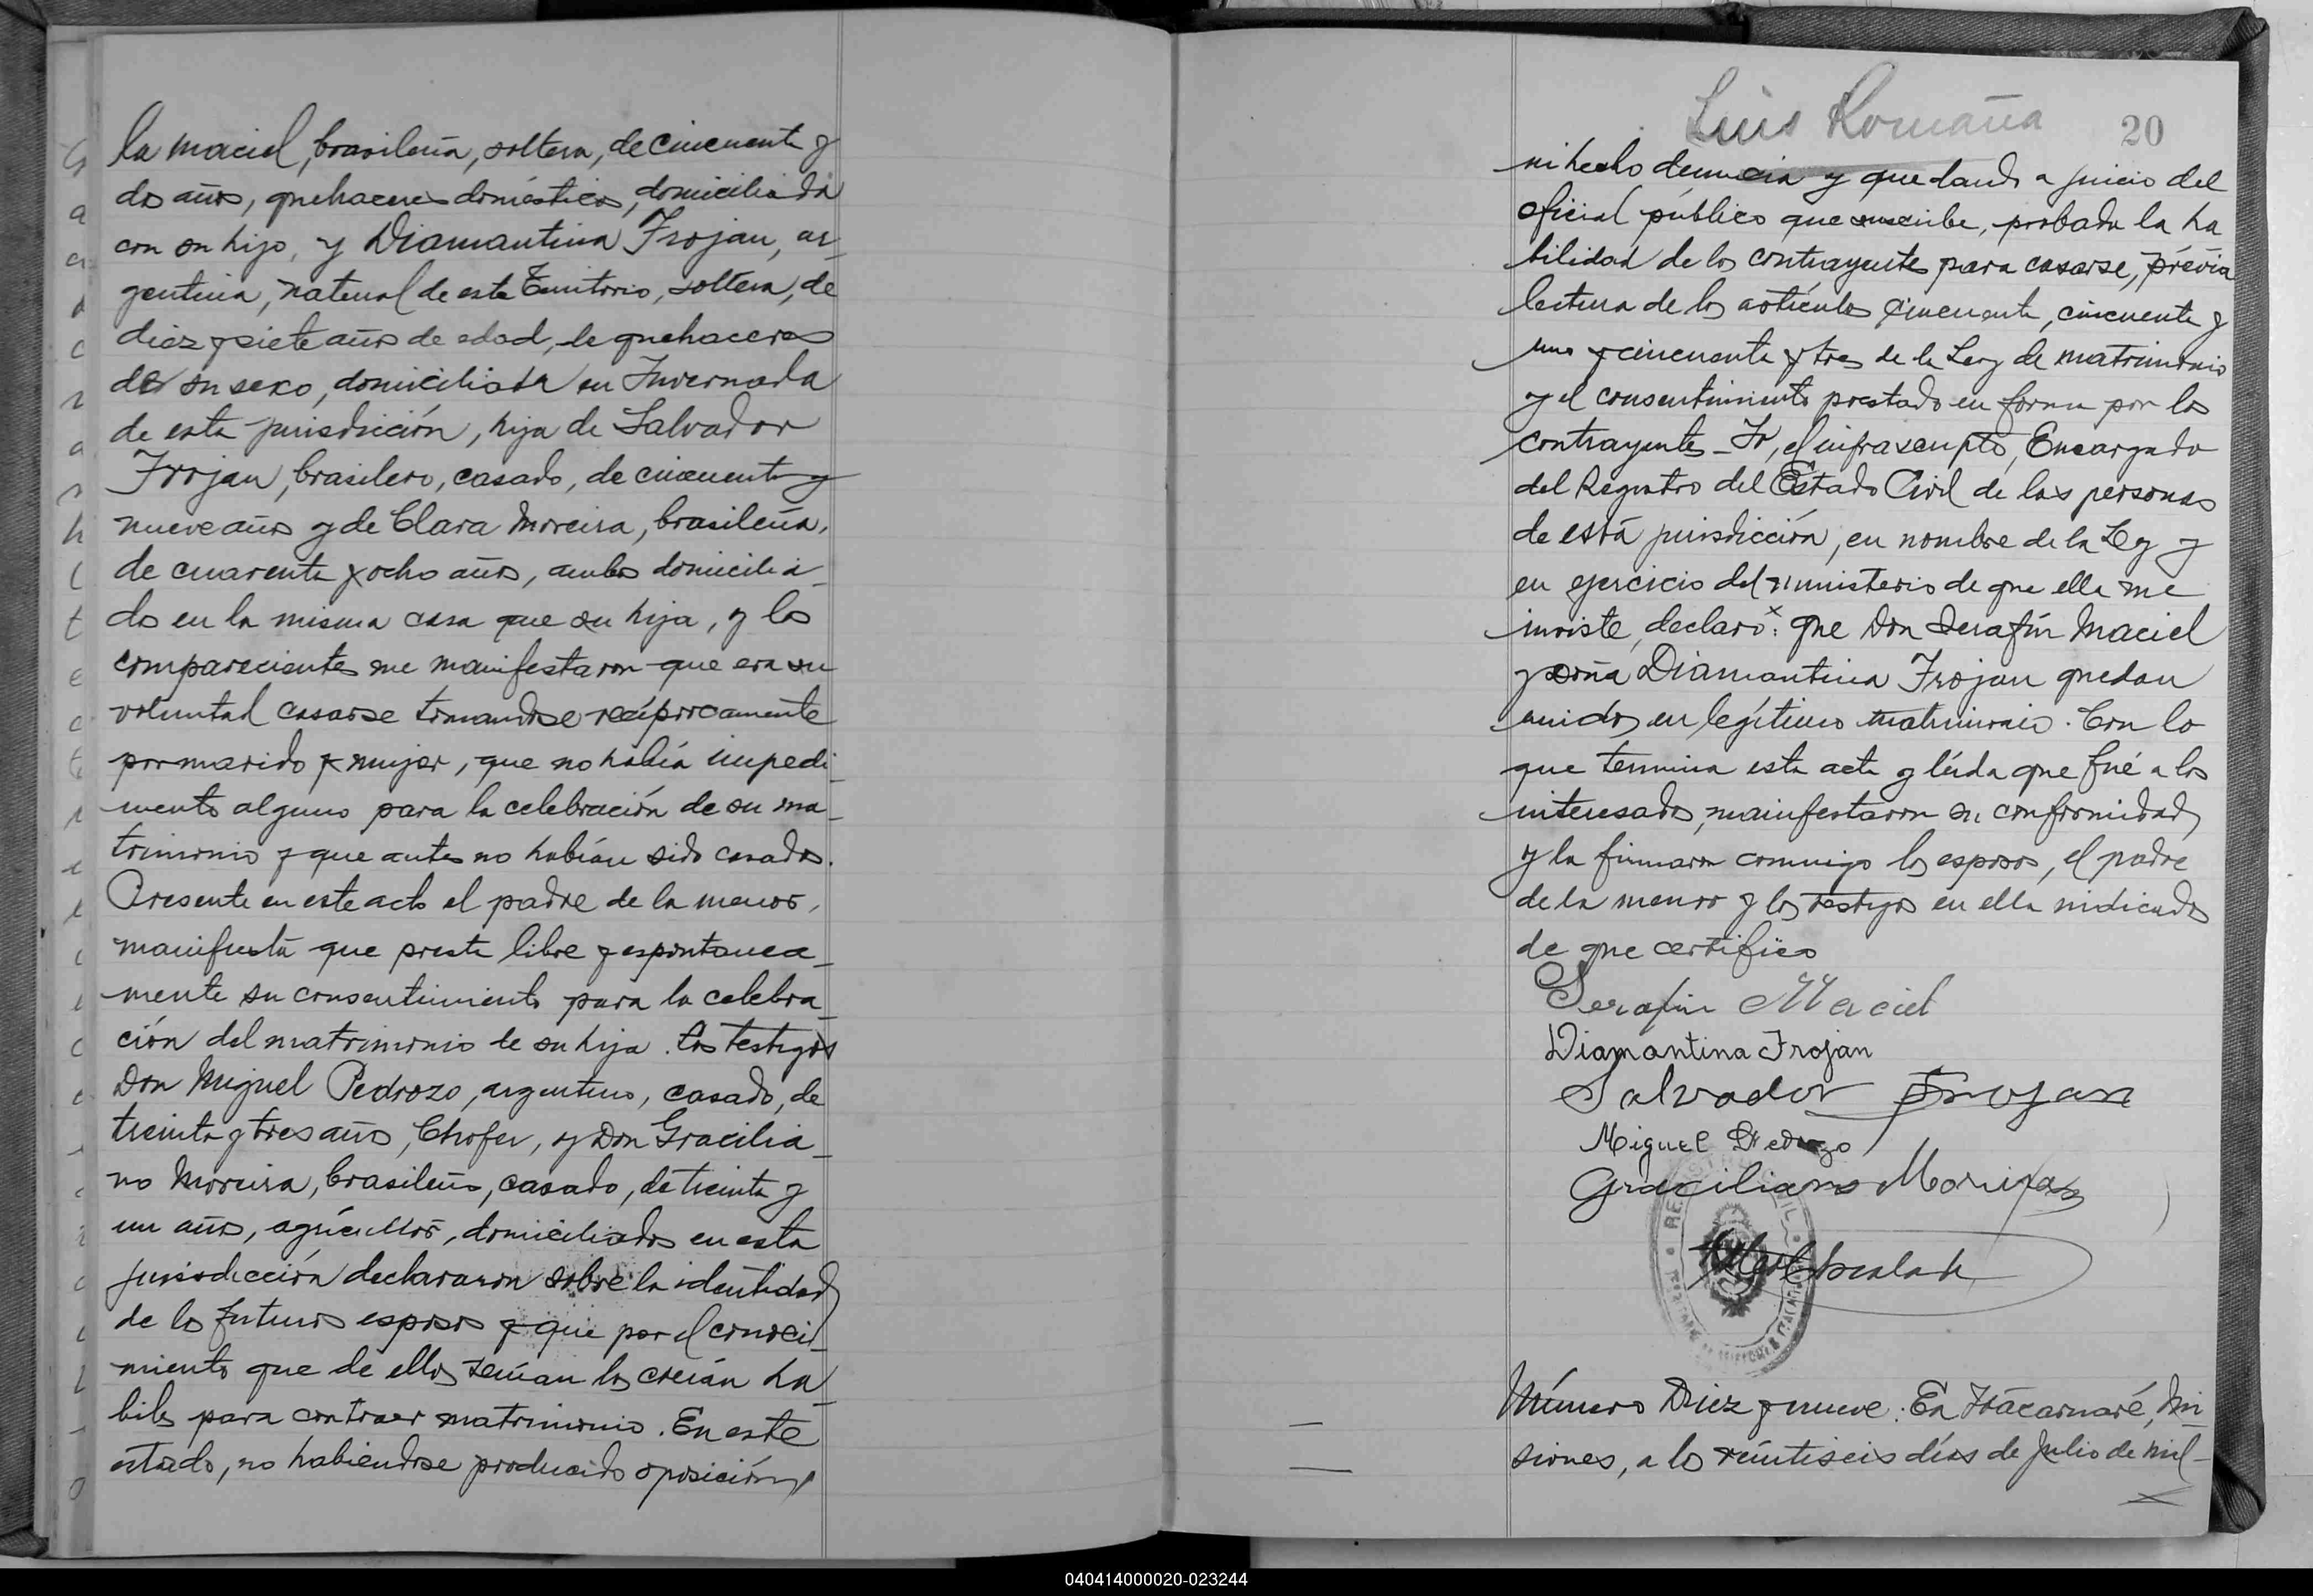 la Maciel, brasileña, soltera, de cincuenta y
dos años, quehaceres domésticos, domiciliada
con su hijo, y Diamantina Frojan, ar-
gentina, natural de este Territorio, soltera, de
diez y siete años de edad, de quehaceres
de su sexo, domiciliada en Invernada
de esta jurisdicción, hija de Salvador
Frojan, brasilero, casado, de cincuenta y
nueve años y de Clara Moreira, brasileña,
de cuarenta y ocho años, ambos domicilia-
dos en la misma casa que su hija, y los
comparecientes me manifestaron que era su
voluntad casarse tomandose recíprocamente
por marido y mujer, que no había impedi-
mento alguno para la celebración de su ma-
trimonio y que antes no habían sido casados.
Presente en este acto el padre de la menor,
manifestó que presta libre y espontanea-
mente su consentimiento para la celebra-
ción del matrimonio de su hija. Los testigos
Don Miguel Pedrozo, argentino, casado, de
treinta y tres años, Chofer, y Don Gracilia-
no Moreira, brasileño, casado, de treinta y
un años, agricultor, domiciliados en esta
jurisdicción declararon sobre la identidad
de los futuros esposos y que por el conoci-
miento que de ellos tenían los creían há-
biles para contraer matrimonio. En este
estado, no habiendose producido oposición
Luis Romaña
20
ni hecho denuncia y quedando a juicio del
oficial público que suscribe, probada la ha
bilidad de los contrayentes para casarse, prévia
lectura de los artículos cincuenta, cincuenta y
uno y cincuenta y tres de la Ley de matrimonio
y el consentimiento prestado en forma por los
contrayentes - Yo, el infrascripto, Encargado
del Registro del Estado Civil de las personas
de esta jurisdicción, en nombre de la Ley y
en ejercicio del ministerio de que ella me
inviste, declaro: que Don Serafín Maciel
y doña Diamantina Frojan quedan
unidos en legítimo matrimonio. Con lo
que termina esta acta y leída que fué a los
interesados, manifestaron su conformidad
y la firmaron conmigo los esposos, el padre
de la menor y los testigos en ella indicados
de que certifico
Serafin Maciel
Diamantina Frojan
Salvador Frojan
Miguel Pedrozo
Graciliano Moreira
REGISTRO CIVIL
Número Diez y nueve. En Itacaruaré, Mi-
siones, a los veintiseis días de Julio de mil-
040414000020-023244